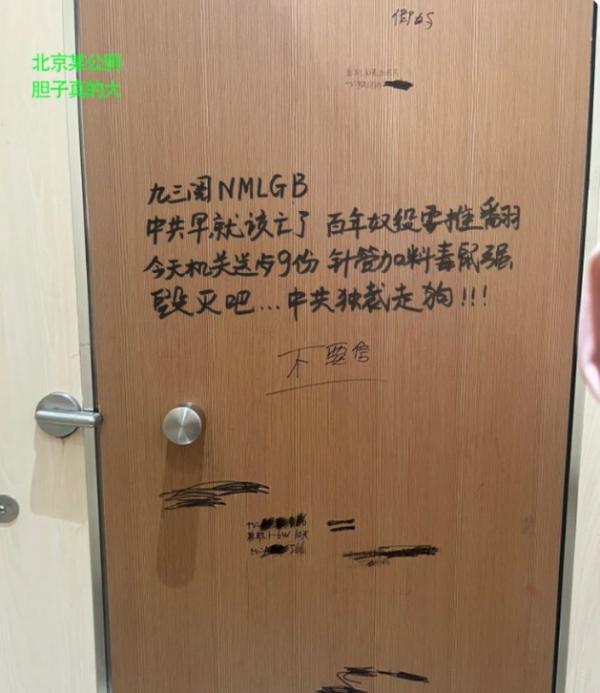 北京某公厕
胆子真的大
九三阅NMLGB
中共早就该亡了 百年奴役要推翻
今天机关送步9份 针管加料毒鼠强
毁灭吧...中共独裁走狗!!!
不要信